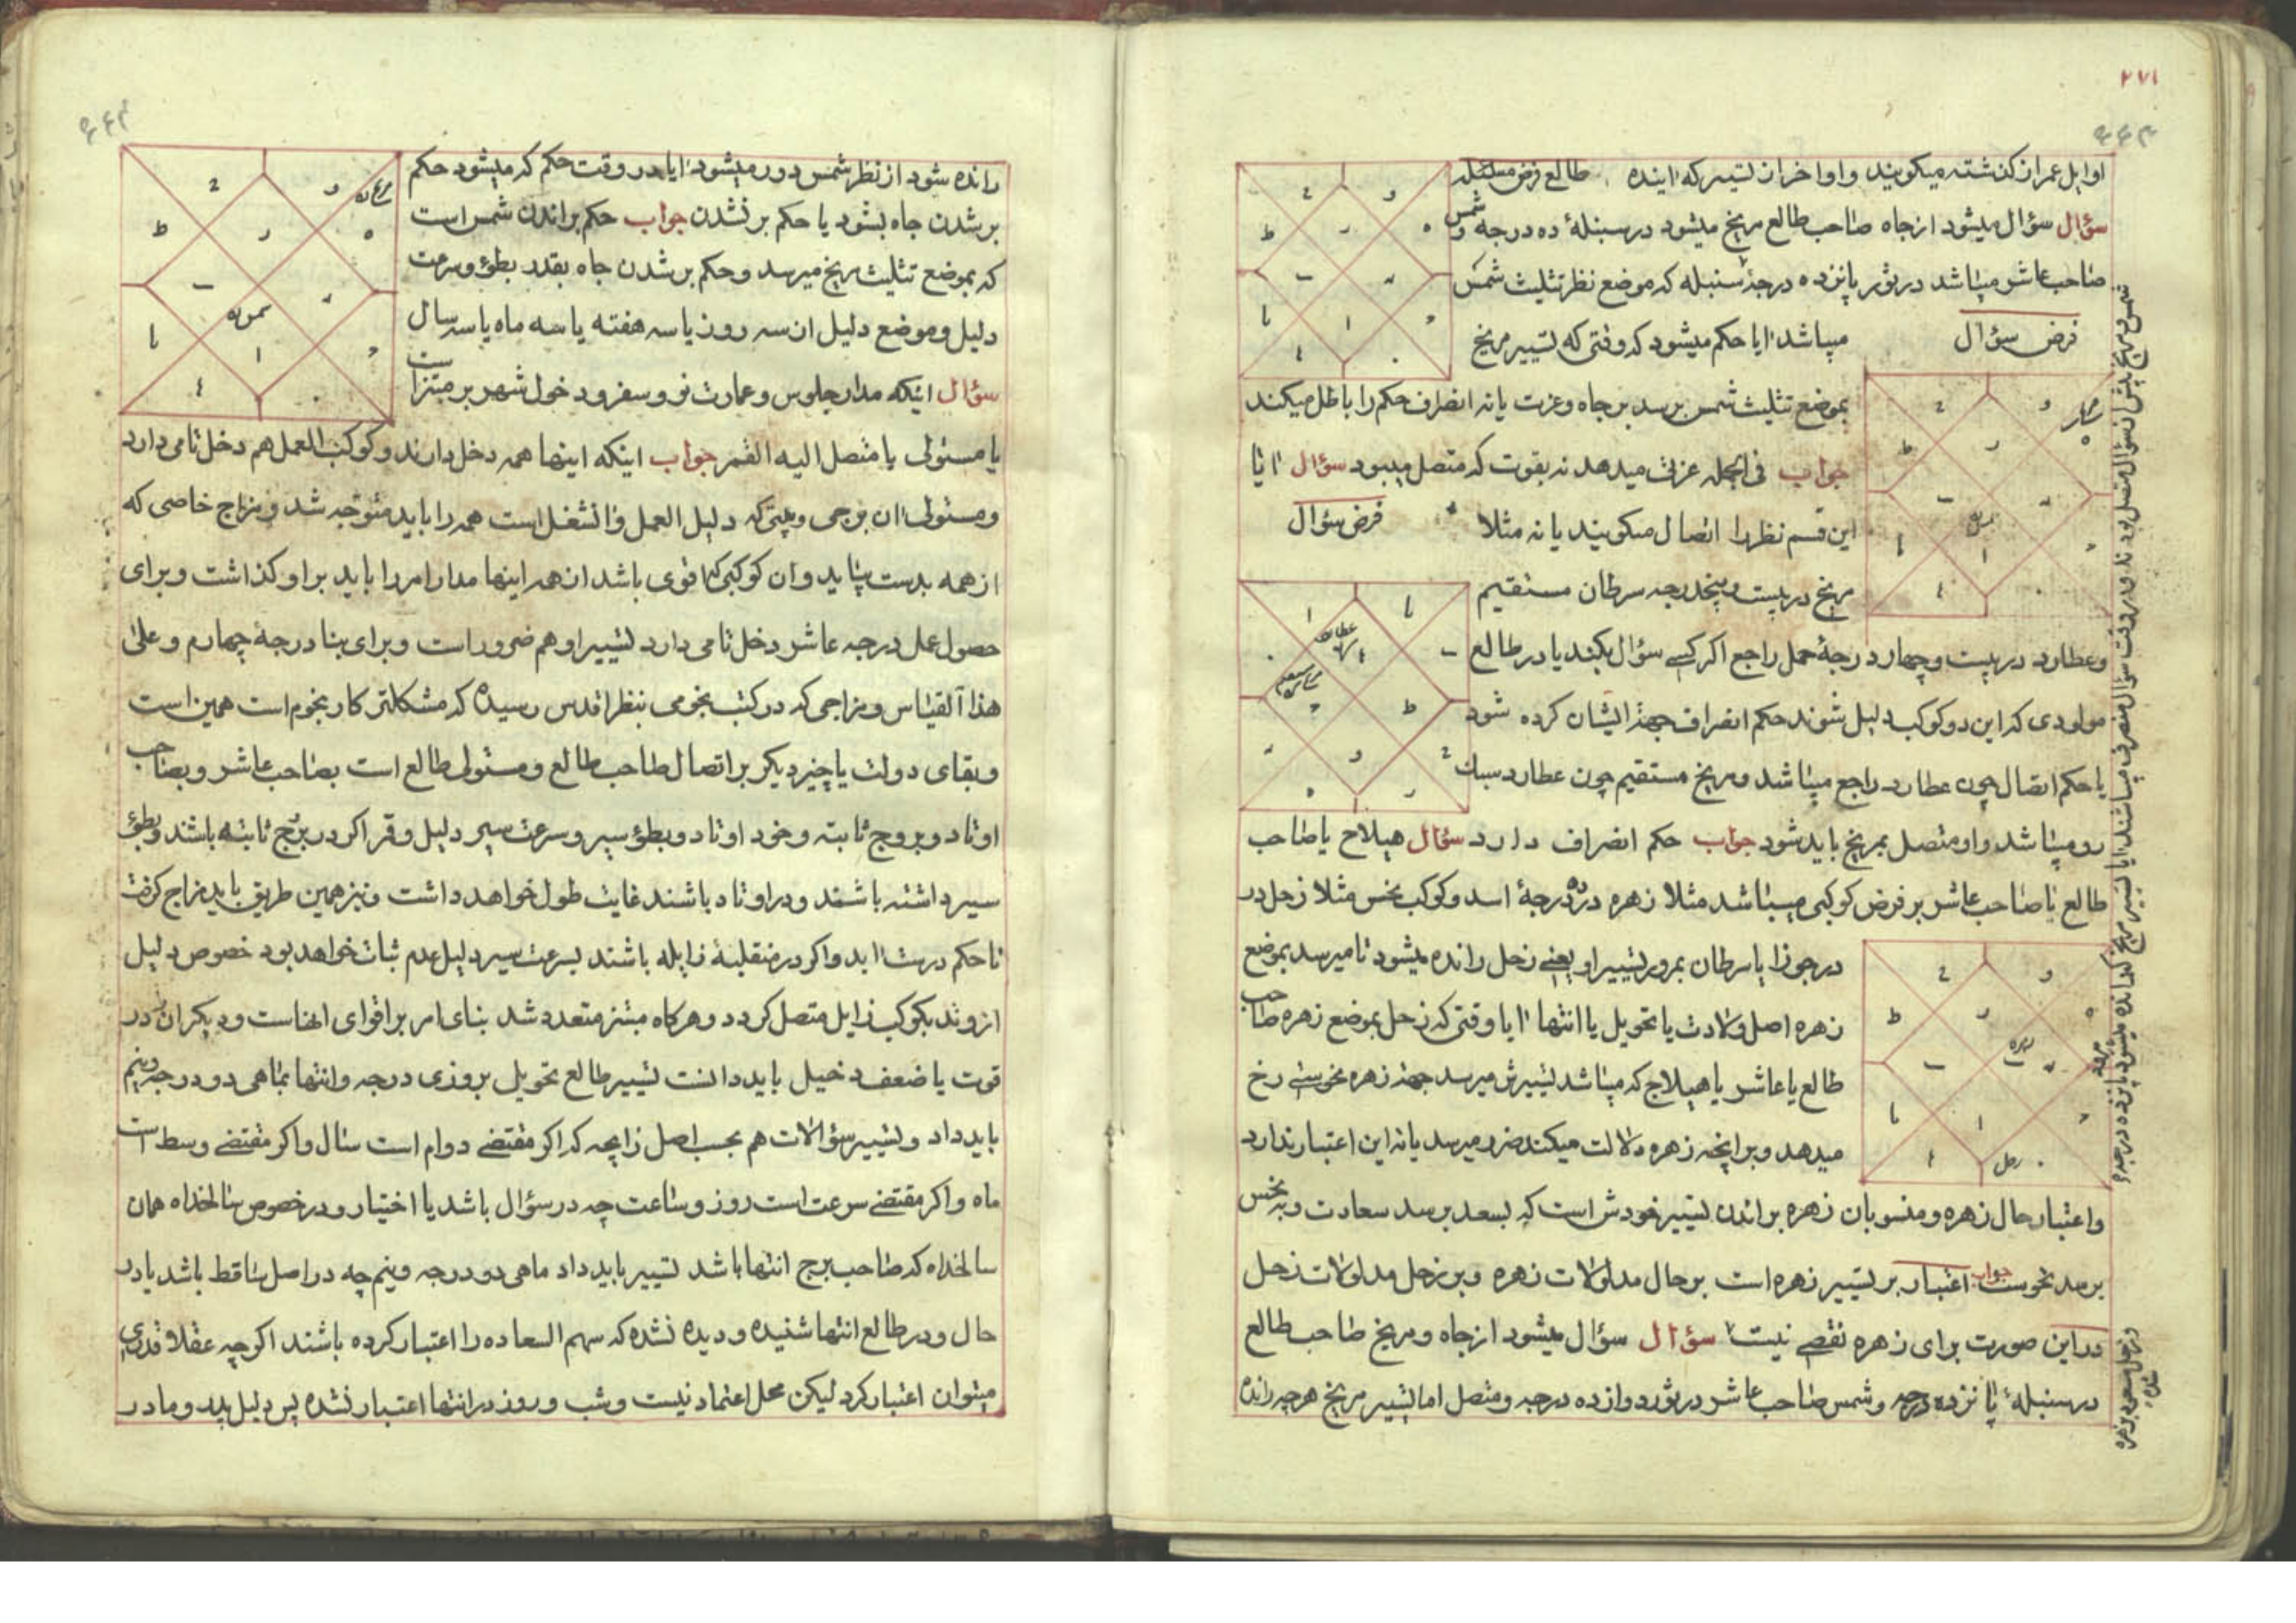 ۲۷۱
اوایل عمر از کذشته میکویند و اواخر از تسییر که اینده طالع فرض مسئله
سؤال سؤال میشود از جاه صاحب طالع مریخ میشود در سنبلهٔ ده درجه و شمس
صاحب عاشر میباشد در ثور پانزده درجهٔ سنبله که موضع نظر تثلیث شمس
میباشد ایا حکم میشود که وقتی که تسییر مریخ
فرض سؤال
بموضع تثلیث شمس برسد بر جاه و عزت یا نه انصراف حکم را باطل میکند
جواب فی الجمله عزتی میدهد نه بقوت که متصل میبود سؤال ایا
این قسم نظر را اتصال میکویند یا نه مثلا
فرض سؤال
مریخ در بیست و پنجدرجه سرطان مستقیم
و عطارد در بیست و چهار درجهٔ حمل راجع اکر کسی سؤال بکند یا در طالع
مولودی که این دو کوکب دلیل شوند حکم انصراف جهة ایشان کرده شود
یا حکم اتصال چون عطارد راجع میباشد و مریخ مستقیم چون عطارد سبک
رو میباشد و او متصل بمریخ باید شود جواب حکم انصراف دارد سؤال هیلاج یا صاحب
طالع یا صاحب عاشر بر فرض کوکبی میباشد مثلا زهره در ده درجهٔ اسد و کوکب نحس مثلا زحل در
در جوزا یا سرطان بمرور تسییر او یعنی زحل رانده میشود تا میرسد بموضع
زهره اصل ولادت یا تحویل یا انتها ایا وقتی که زحل بموضع زهره صاحب
طالع یا عاشر یا هیلاج که میباشد تسییرش میرسد جهة زهره نحوستی رخ
میدهد و برانچه زهره دلالت میکند ضرر میرسد یا نه این اعتبار ندارد
و اعتبار حال زهره و منسوبان زهره براندن تسییر خودش است که بسعد برسد سعادت و بنحس
برسد نحوست جواب اعتبار بر تسییر زهره است بر حال مدلولات زهره و بر زحل مدلولات زحل
در این صورت برای زهره نقصی نیست سؤال سؤال میشود از جاه و مریخ صاحب طالع
در سنبلهٔ پانزده درجه و شمس صاحب عاشر در ثور دوازده درجه و متصل اما تسییر مریخ هرچه رانده
رانده شود از نظر شمس دور میشود ایا در وقت حکم که میشود حکم
بر شدن جاه بشود یا حکم بر نشدن جواب حکم براندن شمس است
که بموضع تثلیث مریخ میرسد و حکم بر شدن جاه بقدر بطؤ و سرعت
دلیل و موضع دلیل ان سه روز یا سه هفته یا سه ماه یا سه سال
سؤال اینکه مدار جلوس و عمارت نو و سفر و دخول شهر بر مبتز است
یا مستولی یا متصل الیه القمر جواب اینکه اینها همه دخل دارند و کوکب العمل هم دخل تامی دارد
و مستولی ان برجی و بیتی که دلیل العمل و الشغل است همه را باید متوجه شد و مزاج خاصی که
از همه بدست بیاید و ان کوکبی که اقوی باشد از همه اینها مدار امر را باید بر او کذاشت و برای
حصول عمل درجه عاشر دخل تامی دارد تسییر او هم ضرور است و برای بنا درجهٔ چهارم و علی
هذا القیاس و مزاجی که در کتب نجومی بنظر اقدس رسیده که مشکلتر کار نجوم است همین است
و بقای دولت یا چیز دیکر بر اتصال صاحب طالع و مستولی طالع است بصاحب عاشر و بصاحب
اوتاد و بروج ثابته و خود اوتاد و بطؤ سیر و سرعت سیر دلیل و قمر اکر در برج ثابته باشند و بطؤ
سیر داشته باشند و در اوتاد باشند غایت طول خواهد داشت و بنز همین طریق باید مزاج کرفت
تا حکم درست اید و اکر در منقلبهٔ زایله باشند بسرعت سیر دلیل عدم ثبات خواهد بود خصوص دلیل
از وتد بکوکب زایل متصل کردد و هرکاه مبتز متعدد شد بنای امر بر اقوای انهاست و دیکران در
قوت یا ضعف دخیل باید دانست تسییر طالع تحویل بروزی درجه و انتها بماهی دو درجه و نیم
باید داد و تسییر سؤالات هم بحسب اصل زایجه که اکر مقتضی دوام است سال و اکر مقتضی وسط است
ماه و اکر مقتضی سرعت است روز و ساعت چه در سؤال باشد یا اختیار و در خصوص سالخداه همان
سالخداه که صاحب برج انتها باشد تسییر باید داد ماهی دو درجه و نیم چه در اصل ساقط باشد یا در
حال و در طالع انتها شنیده و دیده نشده که سهم السعاده را اعتبار کرده باشند اکرچه عقلا قدری
میتوان اعتبار کرد لیکن محل اعتماد نیست و شب و روز در انتها اعتبار نشده پس دلیل پدر و مادر